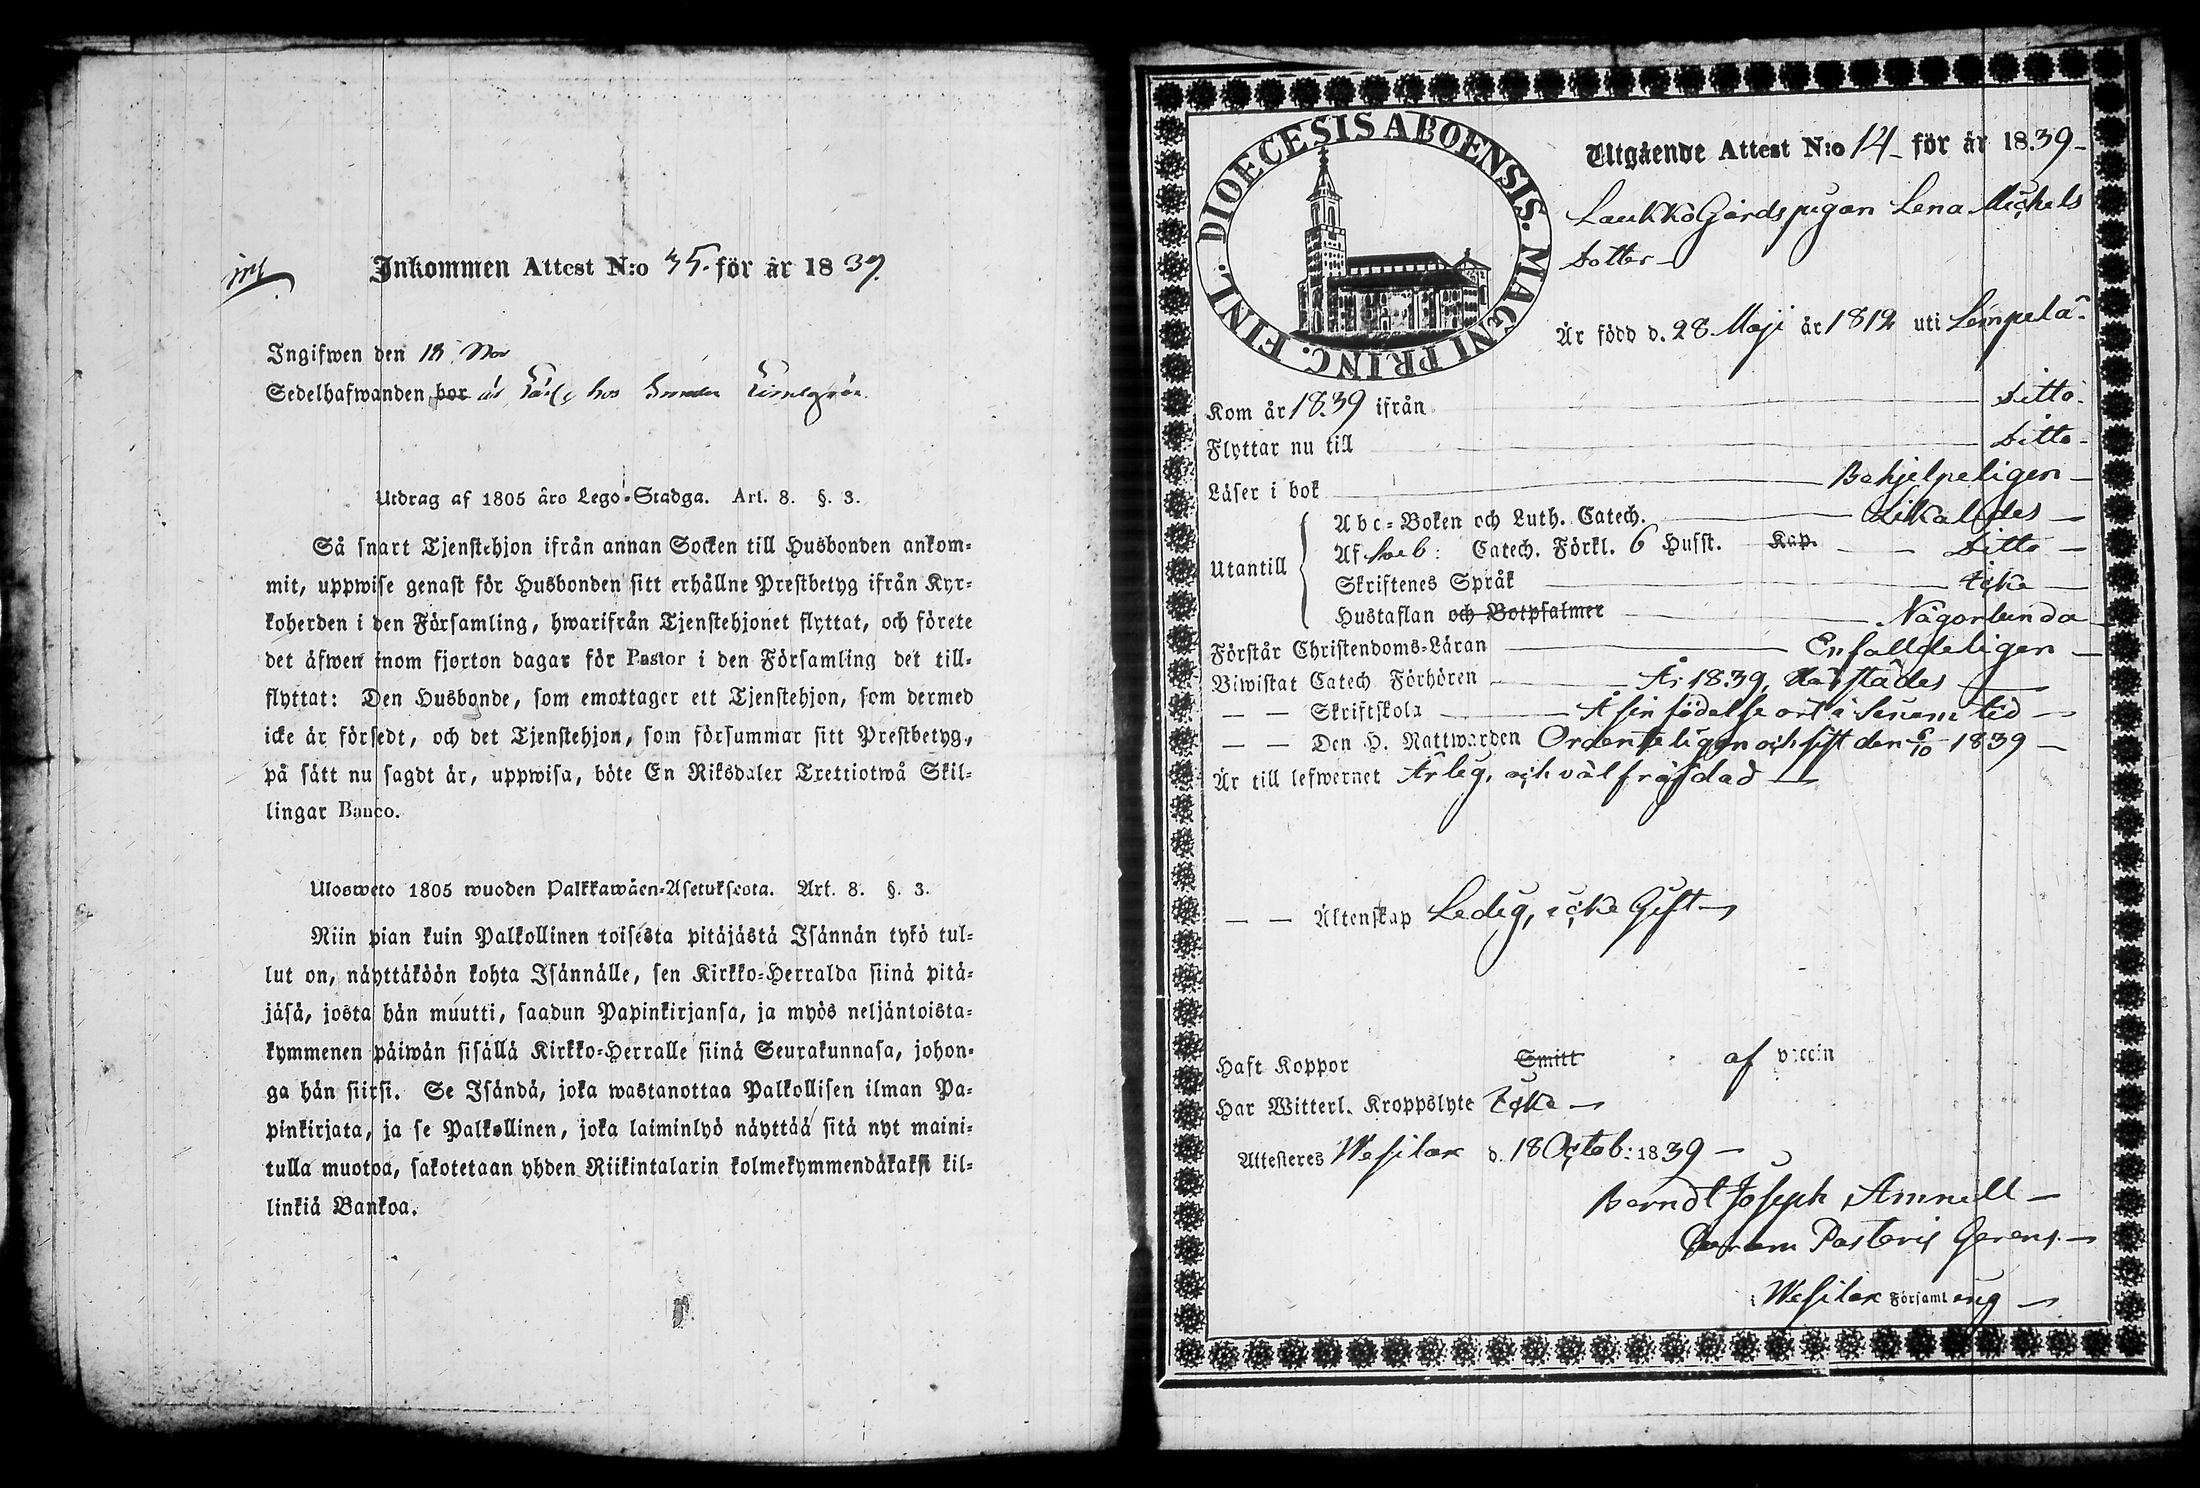 Inkommen Attest N:o 35. för år 1839.
Ingifwen den 18 Nov
Sedelhafwanden bor hos
Utdrag af 1805 års Lego-Stadga. Art. 8. §. 3.
Så snart Tjenstehjon ifrån annan Socken till Husbonden ankom-
mit, uppwise genast för Husbonden sitt erhållne Prestbetyg ifrån Kyr-
koherden i den Församling, hwarifrån Tjenstehjonet flyttat, och förete
det äfwen inom fjorton dagar för Pastor i den Församling det till-
flyttat: Den Husbonde, som emottager ett Tjenstehjon, som dermed
icke är försedt, och det Tjenstehjon, som försummar sitt Prestbetyg,
på sätt nu sagdt är, uppwisa, böte En Riksdaler Trettiotwå Skil-
lingar Banco.
Ulosweto 1805 wuoden Palkkawäen-Asetuksesta. Art. 8. §. 3.
Niin pian kuin Palkollinen toisesta pitäjästä Isännän tykö tul-
lut on, näyttäköön kohta Isännälle, sen Kirkko-Herralda siinä pitä-
jäsä, josta hän muutti, saadun Papinkirjansa, ja myös neljäntoista-
kymmenen päiwän sisällä Kirkko-Herralle siinä Seurakunnasa, johon-
ga hän siirsi. Se Isändä, joka wastanottaa Palkollisen ilman Pa-
pinkirjata, ja se Palkollinen, joka laiminlyö näyttää sitä nyt maini-
tulla muotoa, sakotetaan yhden Riikintalarin kolmekymmendäkaksi kil-
linkiä Bankoa.
DIOECESIS ABOENSIS. MAGNI PRINC. FINL.
Utgående Attest N:o 14 för år 1839
Laukko Gårdspigan Lena Michels
Dotter
Är född d. 28 Maji år 1812 uti Lempelä
Kom år 1839 ifrån Ditto
Flyttar nu till Ditto
Läser i bok Behjelpeligen
Utantill
Abc-Boken och Luth. Catech. Likaledes
Af Sveb: Catech. Förkl. 6 Husst. Kap. Ditto
Skriftenes Språk Icke
Hustaflan och Botpsalmer Någorlunda
Förstår Christendoms-Läran Enfalldeligen
Biwistat Catech. Förhören År 1839, Härstädes
— — Skriftskola Å sin födelse ort i sinom tid
— — Den H. Nattwarden Ordenteligen och sist den 6/10 1839
Är till lefwernet Ärlig, och välfräjdad
— — Äktenskap Ledig, icke Gift
Haft Koppor Smitt af vaccin
Har Witterl. Kroppslyte Icke
Attesteres Wesilax d. 18 Octob: 1839
Berndt Joseph Amnell
Curam Pastoris Gerens.
i Wesilax Församl ing